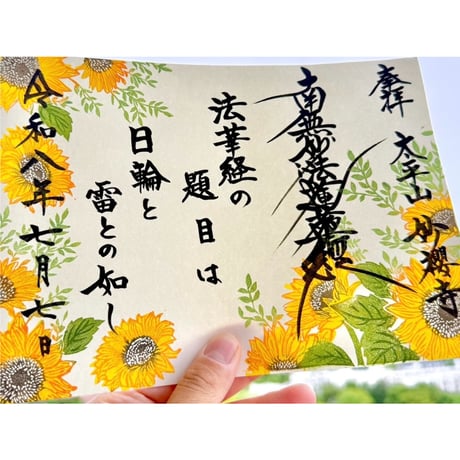 奉拝 太平山 妙櫻寺
南無妙法蓮華経
法華経の
題目は
日輪と
雷との如し
令和八年七月七日